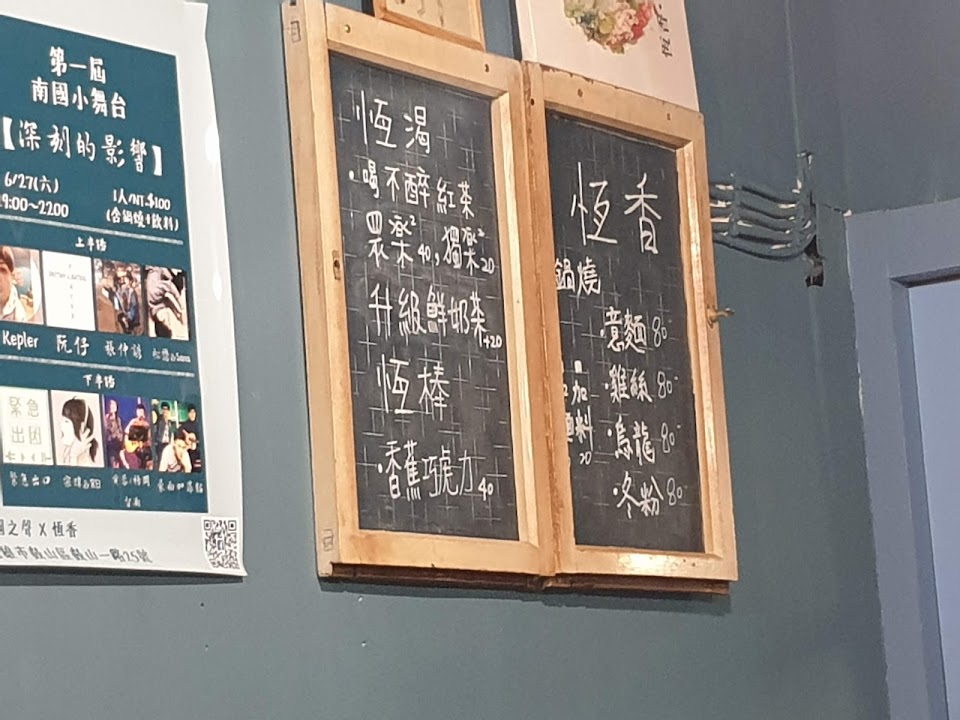 第一屆
南國小舞台
【深刻的影響】
6/27(六)
19:00~22:00
1人/NT.$100
(含鍋燒+飲料)
上半場
Kepler 阮仔
下半場
緊急
出口
緊急出口
之聲 X 恆香
鼓山區鼓山一路25號
恆渴
·喝不醉紅茶
眾樂² 40,獨樂² 20
升級鮮奶茶+20
恆棒
·香蕉巧虎力40
恆香
鍋燒
·意麵 80-
·雞絲 80-
·烏龍 80-
·冬粉 80-
加
料
20
恆香